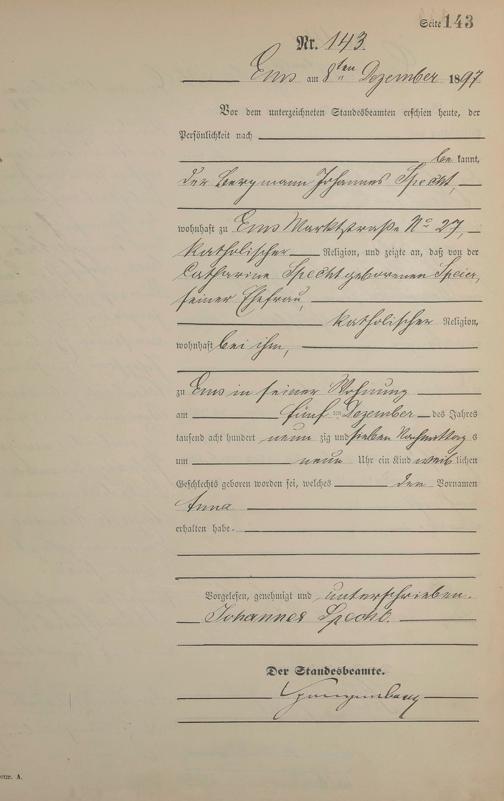 Seite 143
Nr. 143.
Ems am 8ten Dezember 1897
Vor dem unterzeichneten Standesbeamten erschien heute, der
Persönlichkeit nach
be kannt,
der Bergmann Johannes Specht,
wohnhaft zu Ems Marktstraße No 27,
katholischer Religion, und zeigte an, daß von der
Catharine Specht geborenen Speier,
seiner Ehefrau,
katholischer Religion,
wohnhaft bei ihm,
zu Ems in seiner Wohnung
am fünf ten Dezember des Jahres
tausend acht hundert neun zig und sieben Nachmittag s
um neun Uhr ein Kind weib lichen
Geschlechts geboren worden sei, welches den Vornamen
Anna
erhalten habe.
Vorgelesen, genehmigt und unterschrieben.
Johannes Specht.
Der Standesbeamte.
A.